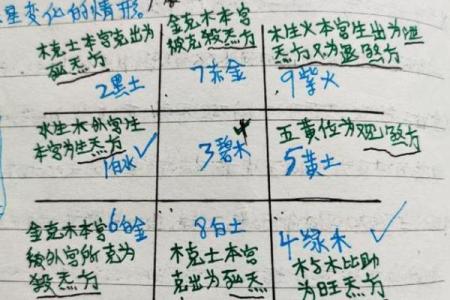 星变化的情形。
木克土本宫克出为
死炁方
2黑土
金克木本宫
被克殺炁方
7赤金
木生火本宫生出为泄
炁方又为退煞方
9紫火
水生木外宫生
本宫为生炁方
1白水✓
3碧木
五黄位为凶煞方
5黄土
金克木本宫
被外宫所克为
殺炁方
6白金
8白土
木克土本宫
克出为死炁
4绿木✓
木与木比助
为旺炁方